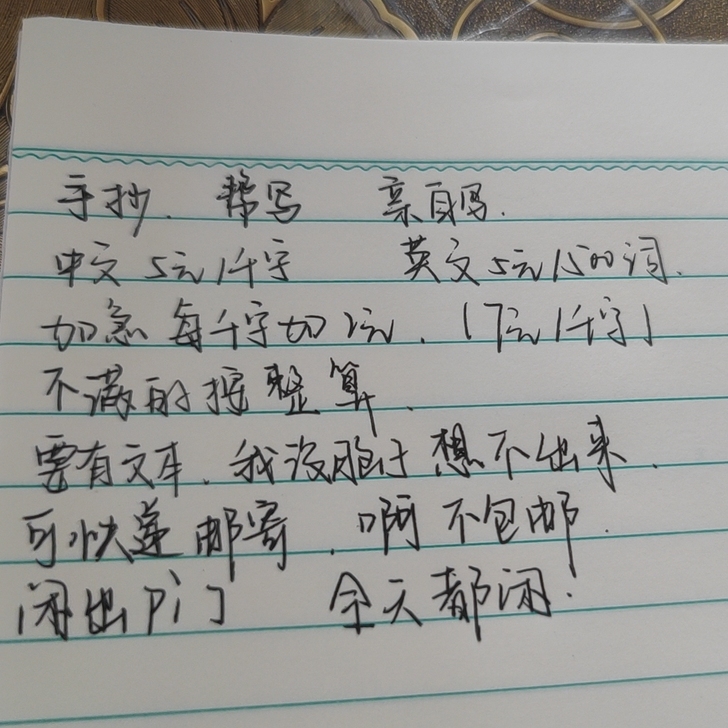 手抄. 帮写 亲自写.
中文 5元/千字 英文 5元/500词.
加急 每千字加2元. (7元/千字)
不满的按整算.
要有文本. 我没脑汁 想不出来.
可快递邮寄. 啊 不包邮.
闲出屁门 全天都闲.